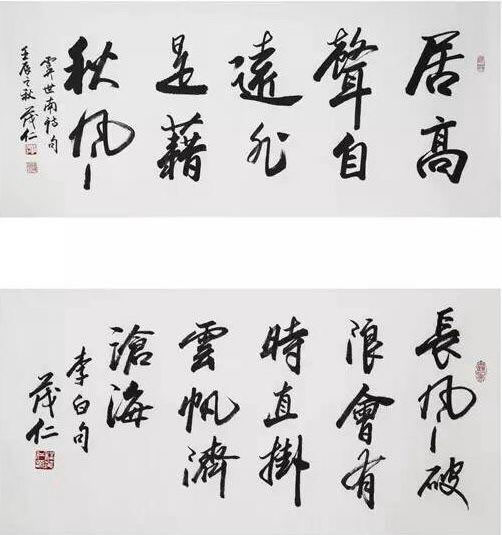 居高
聲自
遠非
是藉
秋風
虞世南詩句
壬辰之秋茂仁
長風破
浪會有
時直掛
雲帆濟
滄海
李白句
茂仁